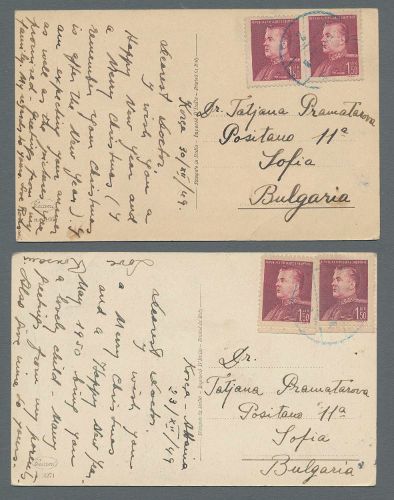 Korça 30/XII/49.
Dearest Doctor.
I wish you a
Happy New Year and
a Merry Christmas (I
remember your Christmas
is after the New Year). I
am expecting your answer
as well as the pictures you
promised - Greetings from my
family. My regards to yours. Love
Dr. Tatjana Pramatarova
Positano 11a
Sofia
Bulgaria
1.50
1.50
Korça - Albania
23/XII/49
Dearest Doctor.
I wish you
a Merry Christmas
and a Happy New Year.
May 1950 bring you
a lovely child - Many
Greetings from my parents.
Also give mine to yours.
Love
Dr.
Tatjana Pramatarova
Positano 11a
Sofia
Bulgaria
1.50
1.50